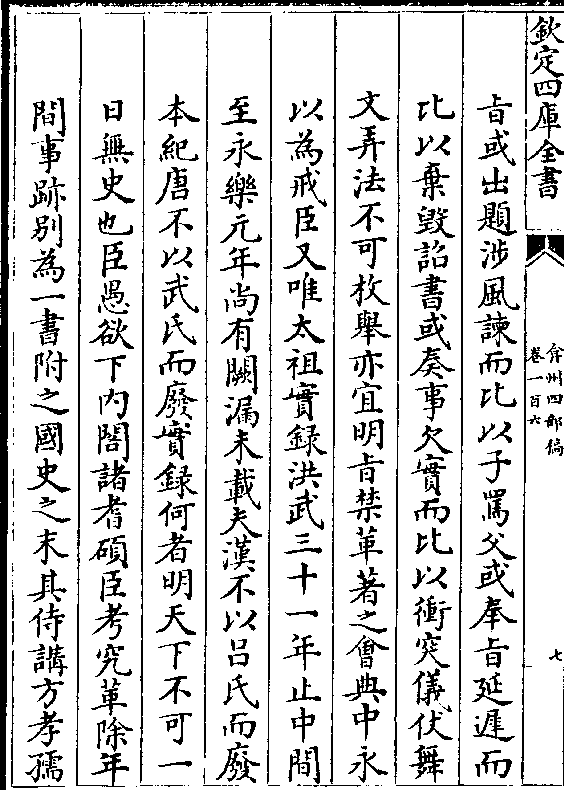 欽定四庫全書
弇州四部稿
卷一百六
七
㫖或出題涉風諫而比以子罵父或奉㫖延遲而
比以棄毀詔書或奏事欠實而比以衝突儀仗舞
文弄法不可枚舉亦宜明㫖禁革著之會典中永
以為戒臣又唯太祖實錄洪武三十一年止中間
至永樂元年尚有闕漏未載夫漢不以吕氏而廢
本紀唐不以武氏而廢實錄何者明天下不可一
日無史也臣愚欲下内閣諸耆碩臣考究革除年
間事跡别為一書附之國史之末其侍講方孝孺